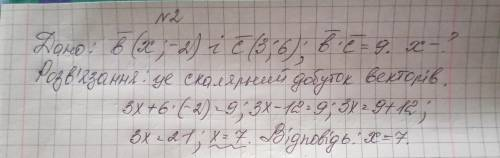 №2
Дано: b̅(x;-2) і c̅(3;6); b̅·c̅=9. x-?
Розв'язання: це скалярний добуток векторів.
3x+6·(-2)=9; 3x-12=9; 3x=9+12;
3x=21; x=7. Відповідь: x=7.